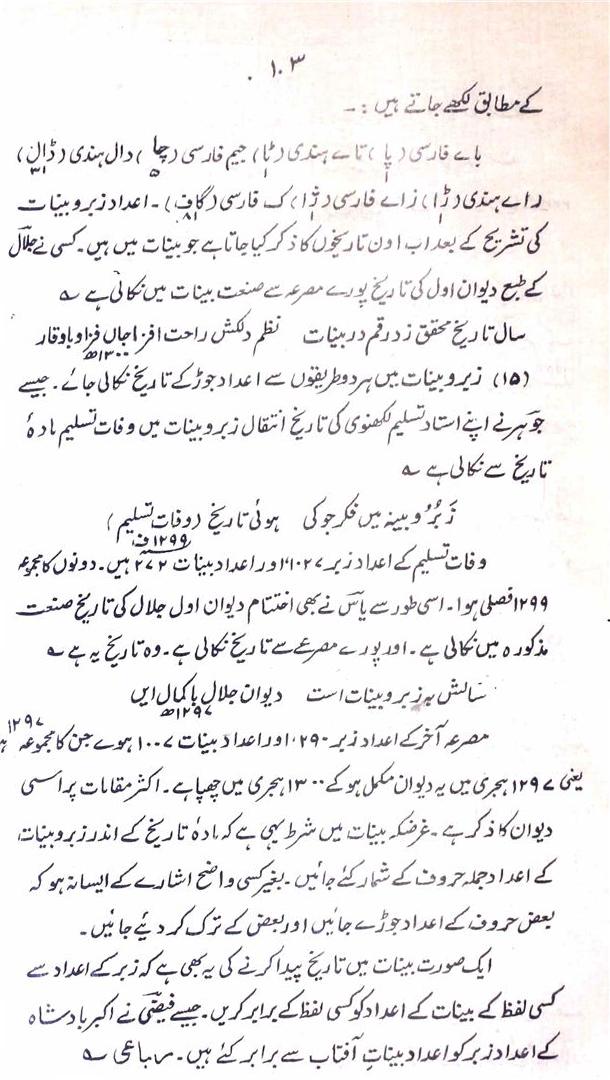 ۱۰۳
کے مطابق لکھے جاتے ہیں :۔
باے فارسی (پا) تاے ہندی (ٹا) جیم فارسی (چا) دال ہندی (ڈال)
راے ہندی (ڑا) زاے فارسی (ژا) ک فارسی (گاف)۔ اعداد زبر و بینات
کی تشریح کے بعد اب اون تاریخوں کا ذکر کیا جاتا ہے جو بینات میں ہیں۔ کسی نے جلالؔ
کے طبع دیوان اول کی تاریخ پورے مصرعہ سے صنعت بینات میں نکالی ہے ؎
سال تاریخ محقق زد رقم در بینات نظم دلکش راحت افزا جاں فزا و با وقار
۱۳۰۰ھ
(۱۵) زبر و بینات میں ہر دو طریقوں سے اعداد جوڑ کے تاریخ نکالی جائے۔ جیسے
جوہر نے اپنے استاد تسلیم لکھنوی کی تاریخ انتقال زبر و بینات میں وفات تسلیم مادۂ
تاریخ سے نکالی ہے ؎
زَبرُ و بینہ میں فکر جو کی ہوئی تاریخ (وفات تسلیم)
۱۲۹۹ف
وفات تسلیم کے اعداد زبر ۱۰۲۷ اور اعداد بینات ۲۷۲ ہیں۔ دونوں کا مجموعہ
۱۲۹۹ فصلی ہوا۔ اسی طور سے یاسؔ نے بھی اختتام دیوان اول جلال کی تاریخ صنعت
مذکورہ میں نکالی ہے۔ اور پورے مصرعے سے تاریخ نکالی ہے۔ وہ تاریخ یہ ہے ؎
سالش بہ زبر و بینات است دیوان جلال با کمال ایں
۱۲۹۷ھ
مصرعہ آخر کے اعداد زبر ۲۹۰ اور اعداد بینات ۱۰۰۷ ہوے جن کا مجموعہ ۱۲۹۷
یعنی ۱۲۹۷ ہجری میں یہ دیوان مکمل ہو کے ۱۳۰۰ ہجری میں چھپا ہے۔ اکثر مقامات پر اسی
دیوان کا ذکر ہے۔ غرضکہ بینات میں شرط یہی ہے کہ مادۂ تاریخ کے اندر زبر و بینات
کے اعداد جملہ حروف کے شمار کئے جائیں۔ بغیر کسی واضح اشارے کے ایسا نہ ہو کہ
بعض حروف کے اعداد جوڑے جائیں اور بعض کے ترک کر دیئے جائیں۔
ایک صورت بینات میں تاریخ پیدا کرنے کی یہ بھی ہے کہ زبر کے اعداد سے
کسی لفظ کے بینات کے اعداد کو کسی لفظ کے برابر کریں۔ جیسے فیضیؔ نے اکبر بادشاہ
کے اعداد زبر کو اعداد بیناتِ آفتاب سے برابر کئے ہیں۔ رباعی ؎